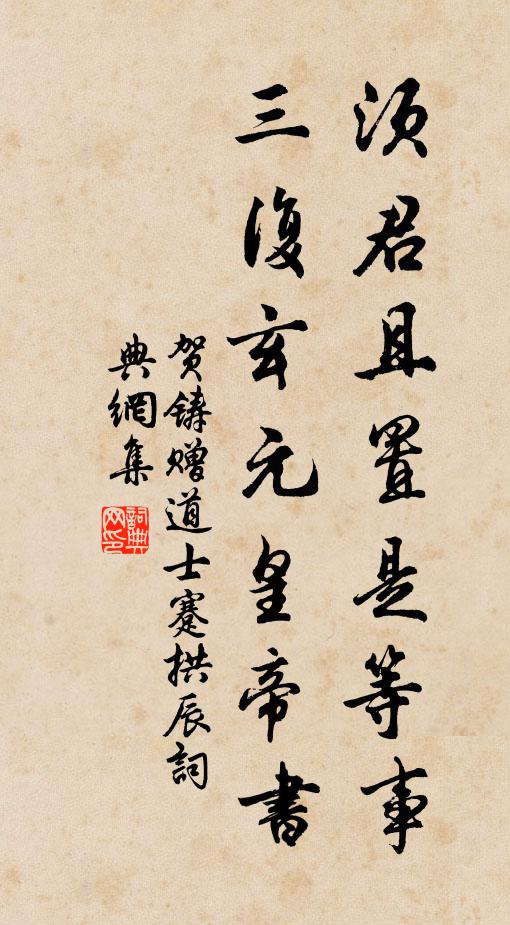 须君且置是等事
三復玄元皇帝書
贺鑄赠道士蹇拱辰詞
典網集
詞典网印